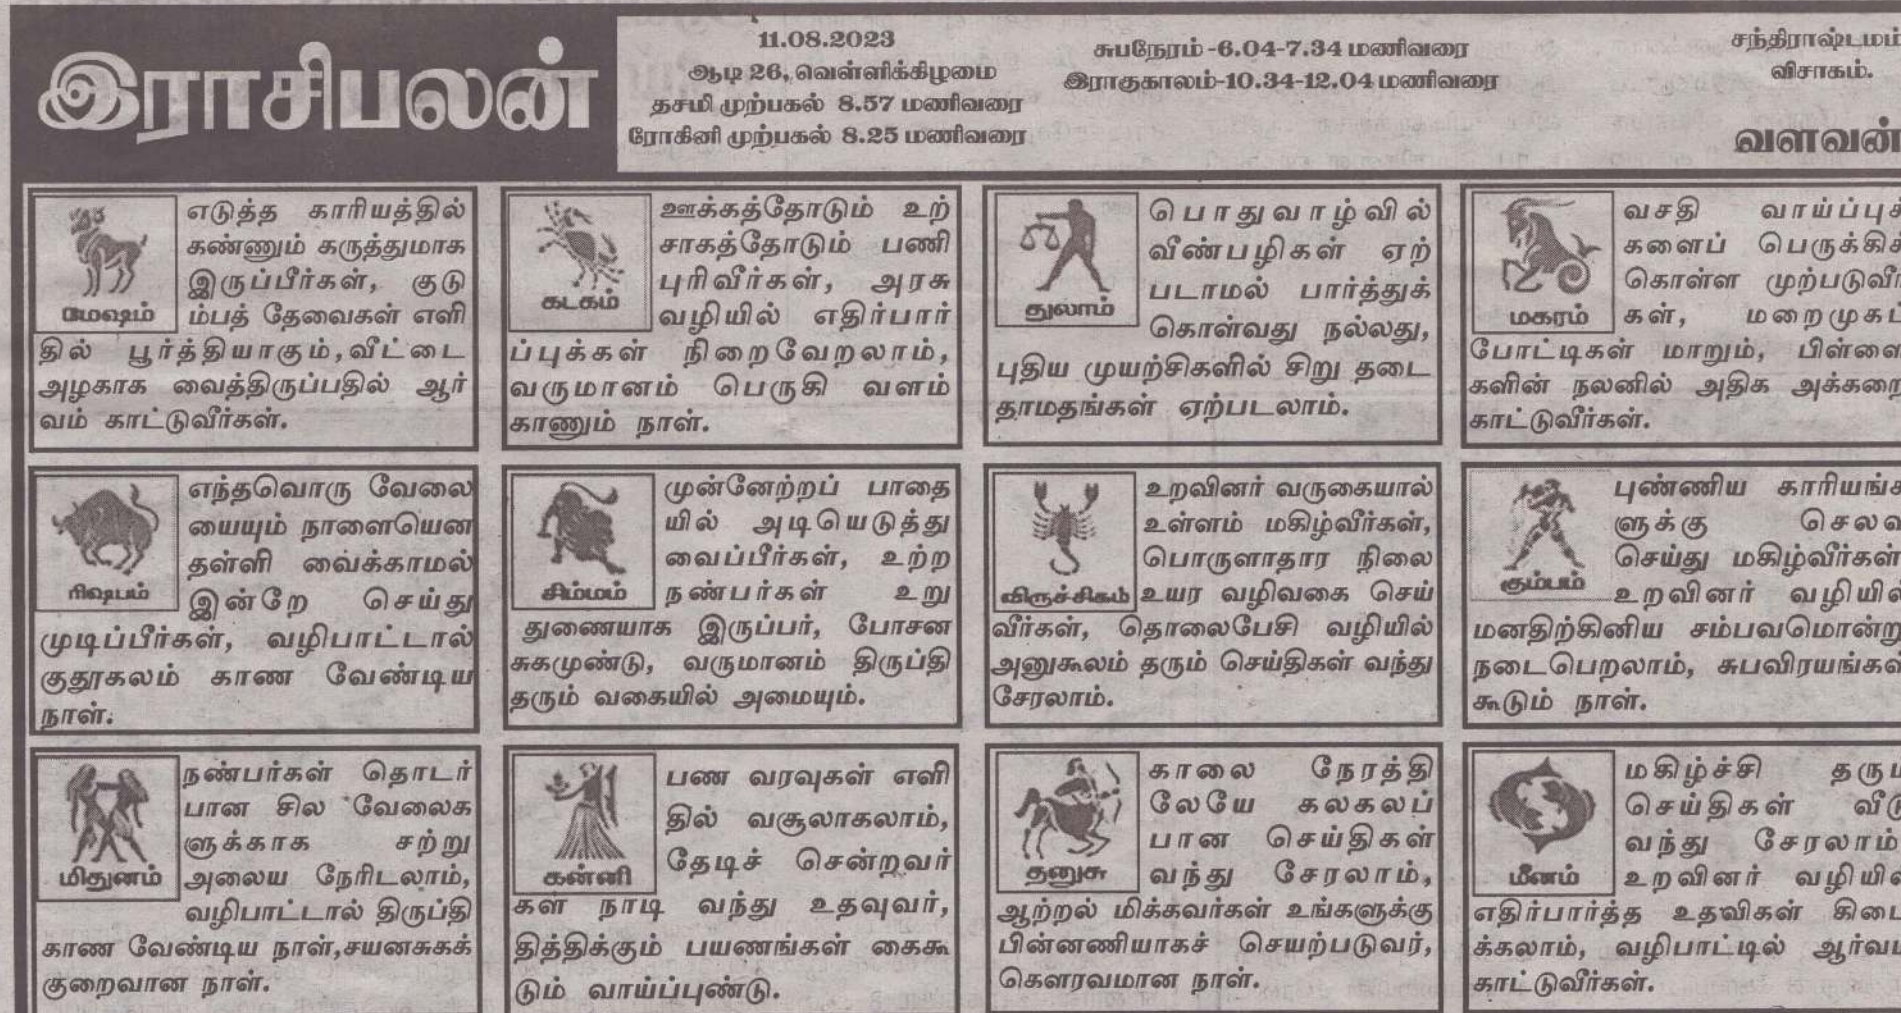 இராசிபலன்
11.08.2023
ஆடி 26, வெள்ளிக்கிழமை
தசமி முற்பகல் 8.57 மணிவரை
ரோகினி முற்பகல் 8.25 மணிவரை
சுபநேரம் -6.04-7.34 மணிவரை
இராகுகாலம்-10.34-12.04 மணிவரை
சந்திராஷ்டமம்
விசாகம்.
வளவன்
மேஷம்
எடுத்த காரியத்தில்
கண்ணும் கருத்துமாக
இருப்பீர்கள், குடு
ம்பத் தேவைகள் எளி
தில் பூர்த்தியாகும்,வீட்டை
அழகாக வைத்திருப்பதில் ஆர்
வம் காட்டுவீர்கள்.
ரிஷபம்
எந்தவொரு வேலை
யையும் நாளையென
தள்ளி வைக்காமல்
இன்றே செய்து
முடிப்பீர்கள், வழிபாட்டால்
குதூகலம் காண வேண்டிய
நாள்.
மிதுனம்
நண்பர்கள் தொடர்
பான சில வேலைக
ளுக்காக சற்று
அலைய நேரிடலாம்,
வழிபாட்டால் திருப்தி
காண வேண்டிய நாள்,சயனசுகக்
குறைவான நாள்.
கடகம்
ஊக்கத்தோடும் உற்
சாகத்தோடும் பணி
புரிவீர்கள், அரசு
வழியில் எதிர்பார்
ப்புக்கள் நிறைவேறலாம்,
வருமானம் பெருகி வளம்
காணும் நாள்.
சிம்மம்
முன்னேற்றப் பாதை
யில் அடியெடுத்து
வைப்பீர்கள், உற்ற
நண்பர்கள் உறு
துணையாக இருப்பர், போசன
சுகமுண்டு, வருமானம் திருப்தி
தரும் வகையில் அமையும்.
கன்னி
பண வரவுகள் எளி
தில் வசூலாகலாம்,
தேடிச் சென்றவர்
கள் நாடி வந்து உதவுவர்,
தித்திக்கும் பயணங்கள் கைகூ
டும் வாய்ப்புண்டு.
துலாம்
பொதுவாழ்வில்
வீண்பழிகள் ஏற்
படாமல் பார்த்துக்
கொள்வது நல்லது,
புதிய முயற்சிகளில் சிறு தடை
தாமதங்கள் ஏற்படலாம்.
விருச்சிகம்
உறவினர் வருகையால்
உள்ளம் மகிழ்வீர்கள்,
பொருளாதார நிலை
உயர வழிவகை செய்
வீர்கள், தொலைபேசி வழியில்
அனுகூலம் தரும் செய்திகள் வந்து
சேரலாம்.
தனுசு
காலை நேரத்தி
லேயே கலகலப்
பான செய்திகள்
வந்து சேரலாம்,
ஆற்றல் மிக்கவர்கள் உங்களுக்கு
பின்னணியாகச் செயற்படுவர்,
கௌரவமான நாள்.
மகரம்
வசதி வாய்ப்புக்
களைப் பெருக்கிக்
கொள்ள முற்படுவீர்
கள், மறைமுகப்
போட்டிகள் மாறும், பிள்ளை
களின் நலனில் அதிக அக்கறை
காட்டுவீர்கள்.
கும்பம்
புண்ணிய காரியங்க
ளுக்கு செலவு
செய்து மகிழ்வீர்கள்
உறவினர் வழியில்
மனதிற்கினிய சம்பவமொன்று
நடைபெறலாம், சுபவிரயங்கள்
கூடும் நாள்.
மீனம்
மகிழ்ச்சி தரும்
செய்திகள் வீடு
வந்து சேரலாம்
உறவினர் வழியில்
எதிர்பார்த்த உதவிகள் கிடை
க்கலாம், வழிபாட்டில் ஆர்வம்
காட்டுவீர்கள்.